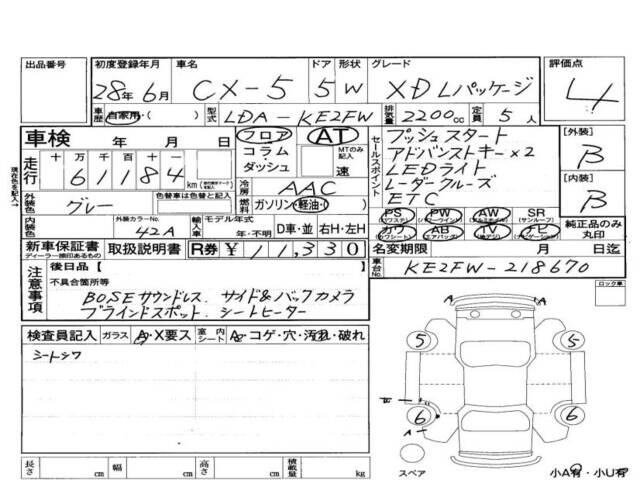 出品番号 初度登録年月 車名 ドア 形状 グレード 評価点
28年 6月 CX-5 5 W XDLパッケージ 4
車歴 自家用・( ) 型式 LDA-KE2FW 排気量 2200cc 定員 5人
車検 年 月 日 フロア AT セールスポイント プッシュスタート [外装]
コラム・ダッシュ MTのみ記入 速 アドバンストキー×2 B
走行 十 万 千 百 十 一 LEDライト
6 1 1 8 4 km 冷房 AAC レーダークルーズ [内装]
外装色 グレー 色替車は色替と記入 燃料 ガソリン・軽油・( ) ETC B
内装色 外装カラーNo. 42A 輸入車 モデル年式 年・不明 D車・並 右H・左H
PS (パワステ) PW (パワーウインド) AW (アルミホイル) SR (サンルーフ)
カワ (カワシート) AB (エアバッグ) TV (地デジ) ナビ (ナビゲーション) 純正品のみ丸印
新車保証書 ディーラー捺印あるもの 取扱説明書 R券 ¥11,330 名変期限 月 日迄
車台No. KE2FW-218670
現在色を記入→
注意事項 後日品 [ ]
不具合箇所等
BOSEサウンドレス. サイド&バックカメラ
ブラインドスポット. シートヒーター
ロック車
検査員記入 ガラス A・X要ス 室内シート A・コゲ・穴・汚れ・破れ
シートシワ
A A
5 5
6 6
スペア
小A有・小U有
長さ cm 幅 cm 高さ cm 積載量 kg